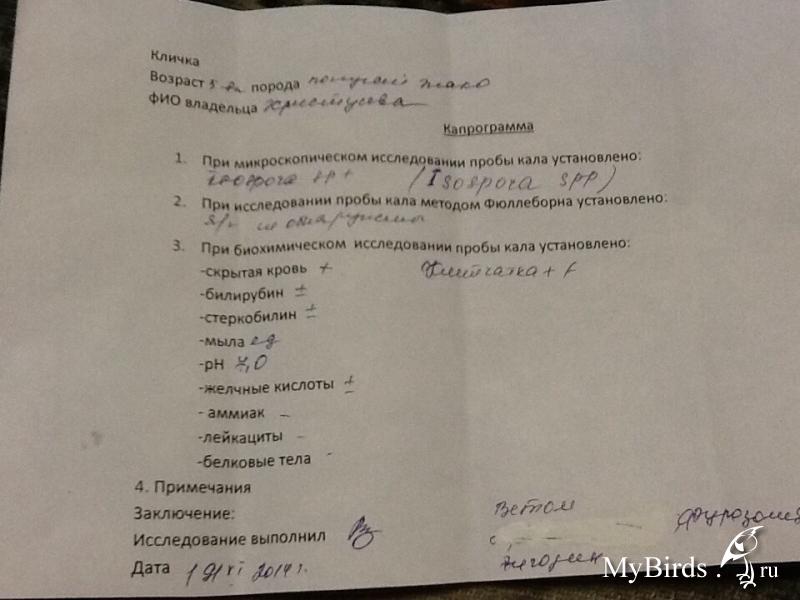 Кличка
Возраст 5 порода попугай жако
ФИО владельца
Капрограмма
1. При микроскопическом исследовании пробы кала установлено:
(Isospora spp)
2. При исследовании пробы кала методом Фюллеборна установлено:
я/г не обнаружены
3. При биохимическом исследовании пробы кала установлено:
-скрытая кровь + Клетчатка +
-билирубин ±
-стеркобилин ±
-мыла ед
-pH 7,0
-желчные кислоты ±
- аммиак –
-лейкациты –
-белковые тела -
4. Примечания
Заключение: Ветом
Исследование выполнил с фуразолид
Дата 2014г.
MyBirds.ru